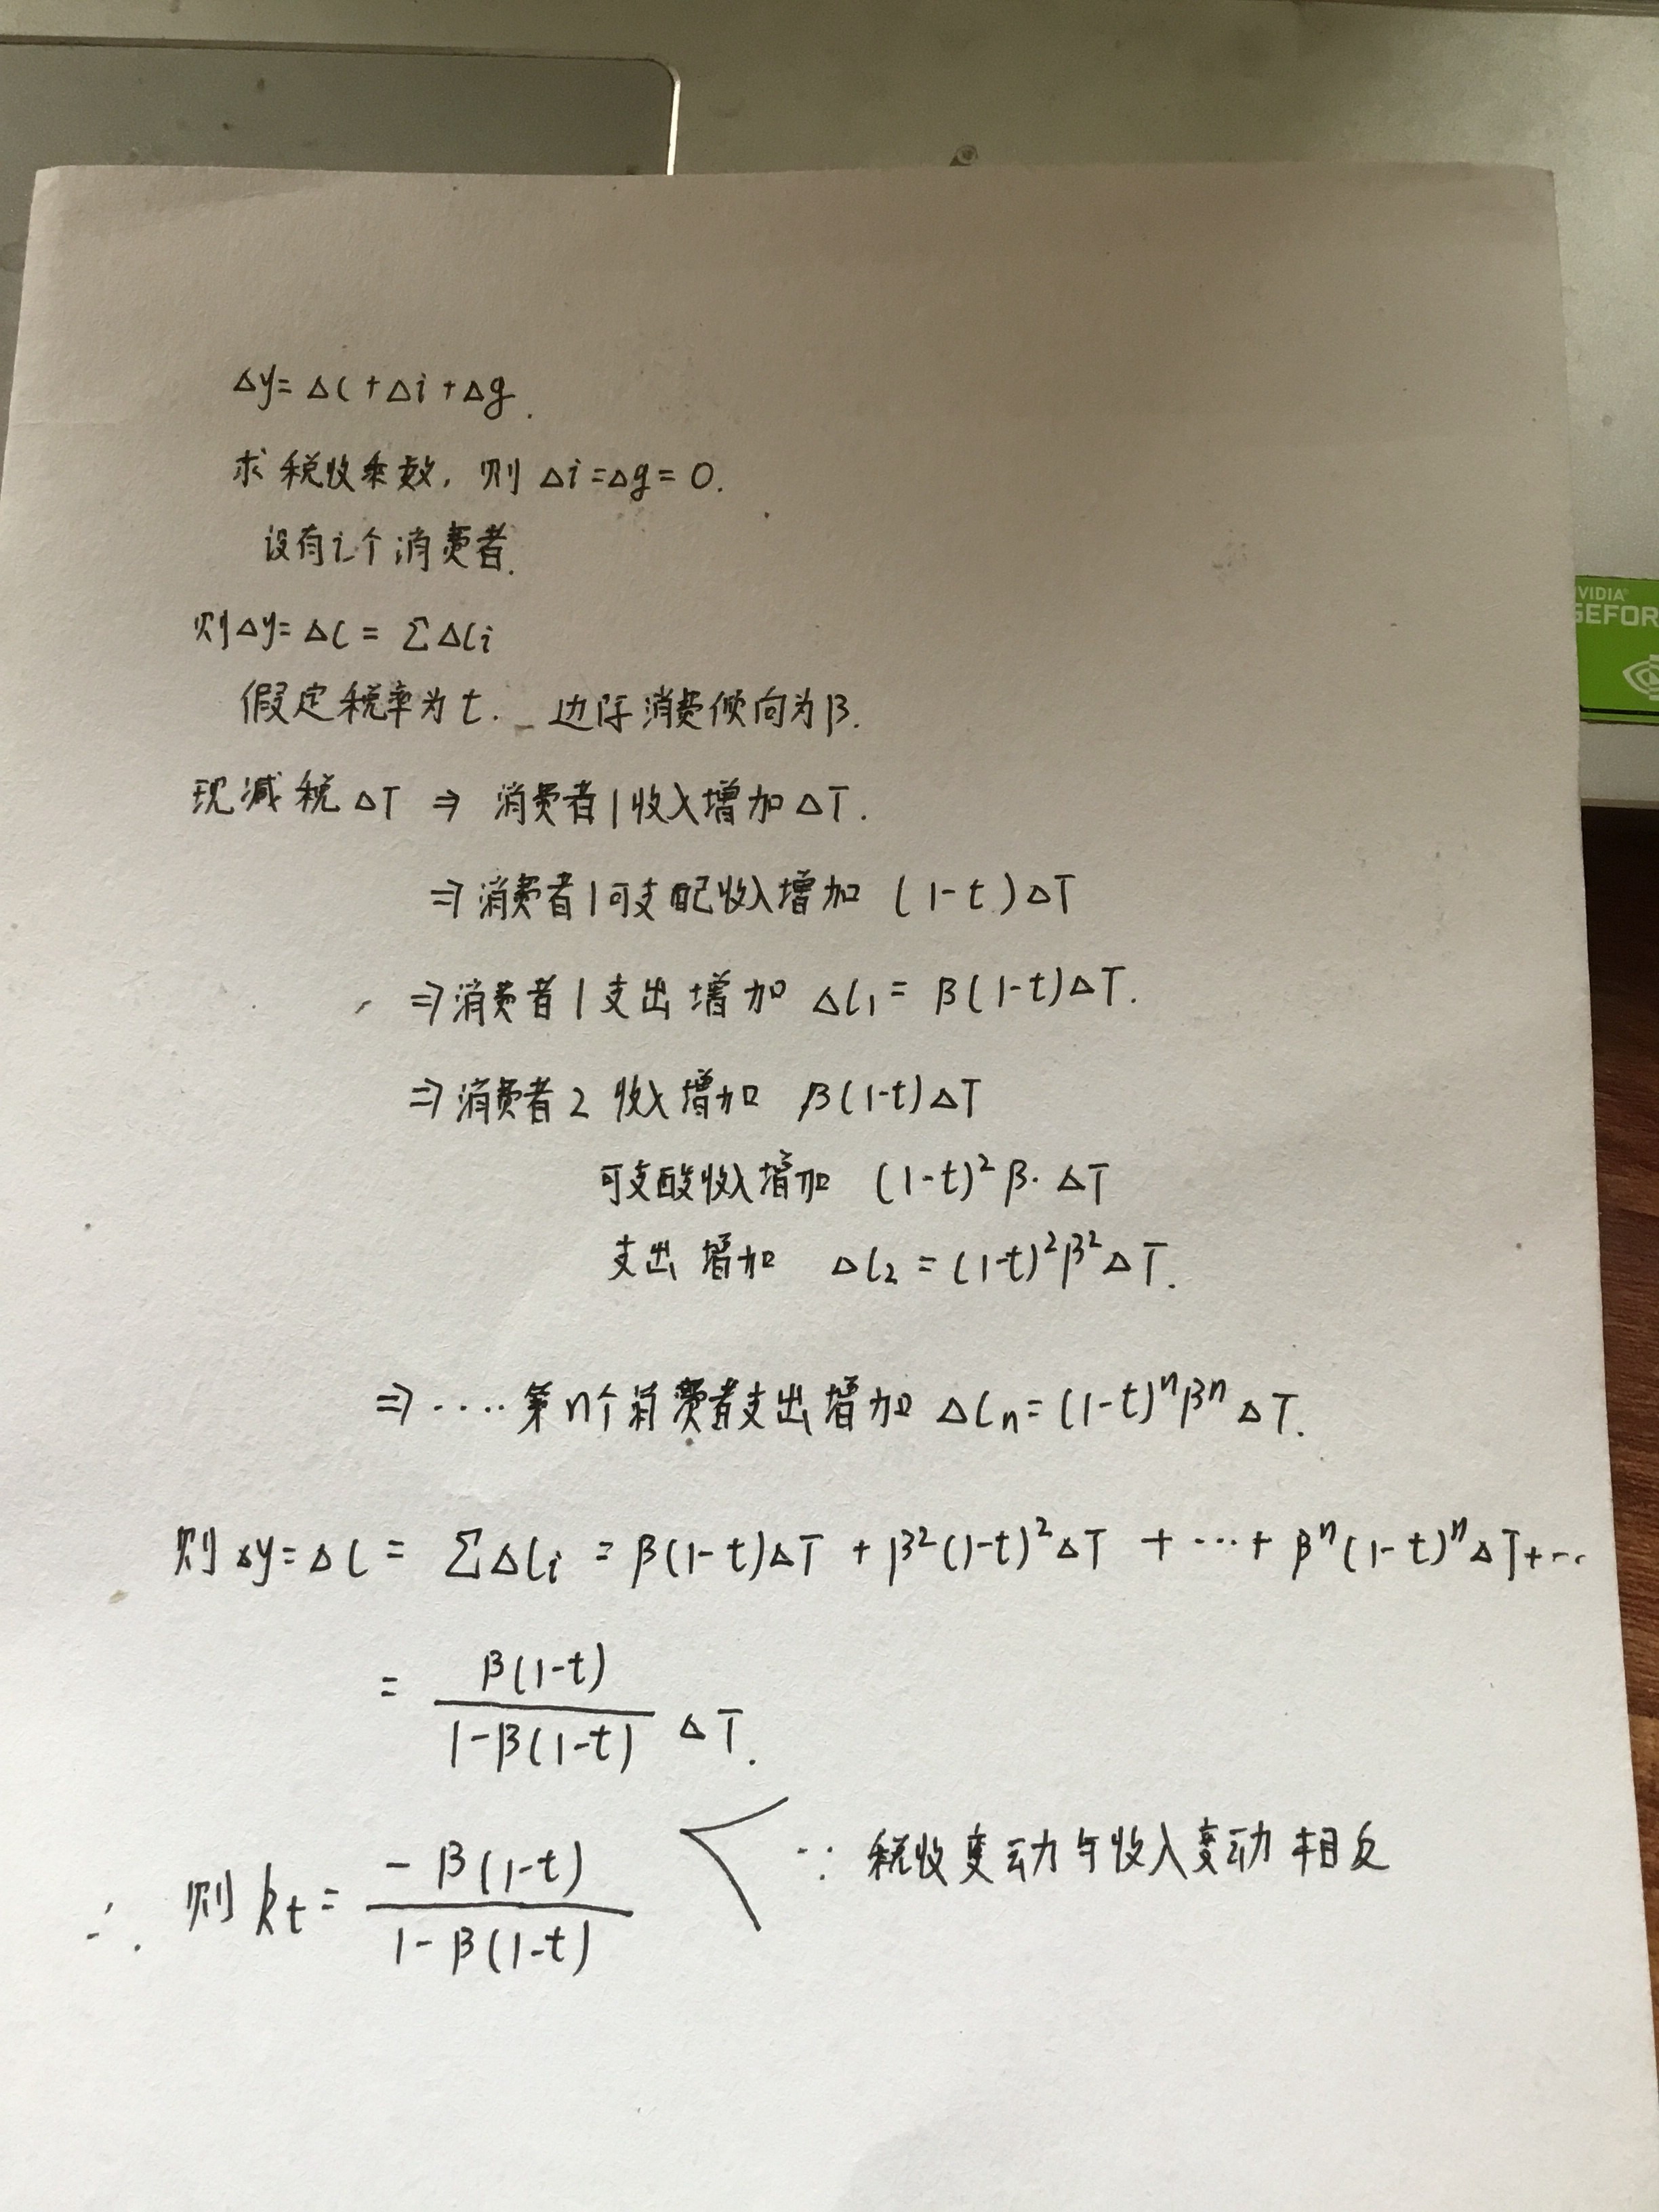 Δy=Δc+Δi+Δg.
求税收乘数，则 Δi=Δg=0.
设有i个消费者.
则Δy=Δc=ΣΔci
假定税率为t. 边际消费倾向为β.
现减税ΔT ⇒ 消费者1收入增加ΔT.
⇒消费者1可支配收入增加 (1-t)ΔT
⇒消费者1支出增加 Δc₁=β(1-t)ΔT.
⇒消费者2收入增加 β(1-t)ΔT
可支配收入增加 (1-t)²β·ΔT
支出增加 Δc₂=(1-t)²β²ΔT.
⇒.....第n个消费者支出增加 Δcₙ=(1-t)ⁿβⁿΔT.
则Δy=Δc=ΣΔci=β(1-t)ΔT+β²(1-t)²ΔT+…+βⁿ(1-t)ⁿΔT+…
= β(1-t)/(1-β(1-t)) ΔT.
∴ 则kt= -β(1-t)/(1-β(1-t)) ∵ 税收变动与收入变动相反
VIDIA
GEFOR